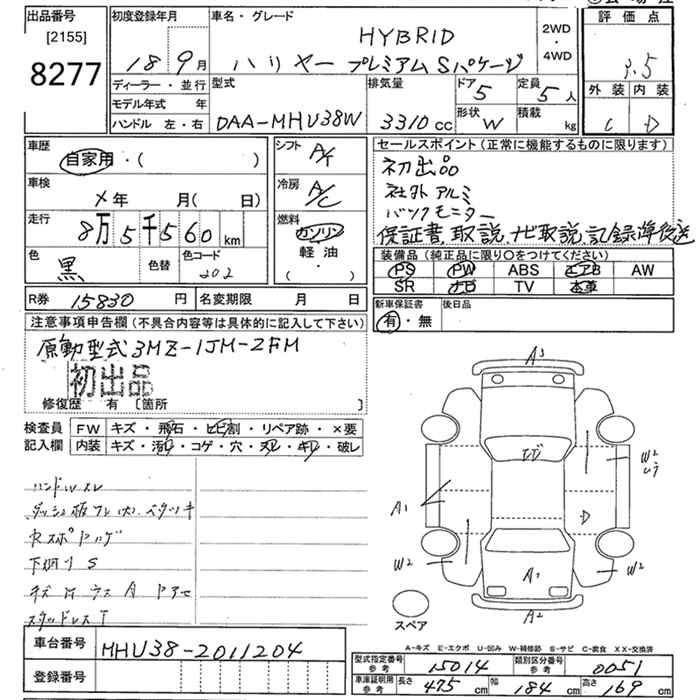 出品番号
[2155]
8277
初度登録年月
18 9月
車名・グレード
HYBRID
ハリヤー プレミアムSパケージ
2WD
・
4WD
評価点
3.5
外装 内装
C D
ディーラー・並行
モデル年式 年
ハンドル 左・右
型式
DAA-MHU38W
排気量
3310cc
ドア
5
定員
5人
形状
W
積載
kg
車歴
自家用・( )
車検
×年 月( 日)
走行
8万5千560km
色
黒
色替
色コード
202
シフト
A/T
冷房
A/C
燃料
ガソリン
軽油
・
( )
セールスポイント(正常に機能するものに限ります)
初出品
社外アルミ
バックモニター
保証書、取説、ナビ取説、記録簿後送
装備品(純正品に限り○をつけてください)
PS PW ABS エアB AW
SR ナビ TV 本革
R券 15830円
名変期限 月 日
新車保証書
有・無
後日品
注意事項申告欄(不具合内容等は具体的に記入して下さい)
原動型式3MZ-1JM-2FM
初出品
修復歴 有 [箇所 ]
検査員
記入欄
FW キズ・飛石・ヒビ割・リペア跡・×要
内装 キズ・汚れ・コゲ・穴・スレ・キレ・破レ
ハンドルスレ
下廻りS
スタッドレスT
A3
W2
A1
D
W2
W2
A1
A2
スペア
A-キズ E-エクボ U-凹み W-補修跡 S-サビ C-腐食 XX-交換済
車台番号
MHU38-2011204
登録番号
型式指定番号
参考
15014
類別区分番号
参考
0051
車庫証明用
参考
長さ 475cm 幅 184cm 高さ 169cm